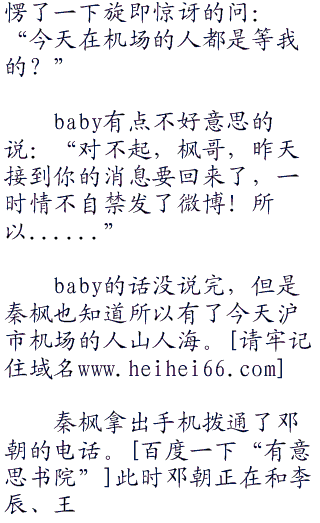 愣了一下旋即惊讶的问：
“今天在机场的人都是等我
的？”
baby有点不好意思的
说：“对不起，枫哥，昨天
接到你的消息要回来了，一
时情不自禁发了微博！所
以......”
baby的话没说完，但是
秦枫也知道所以有了今天沪
市机场的人山人海。[请牢记
住域名www.heihei66.com]
秦枫拿出手机拨通了邓
朝的电话。[百度一下“有意
思书院”]此时邓朝正在和李
辰、王